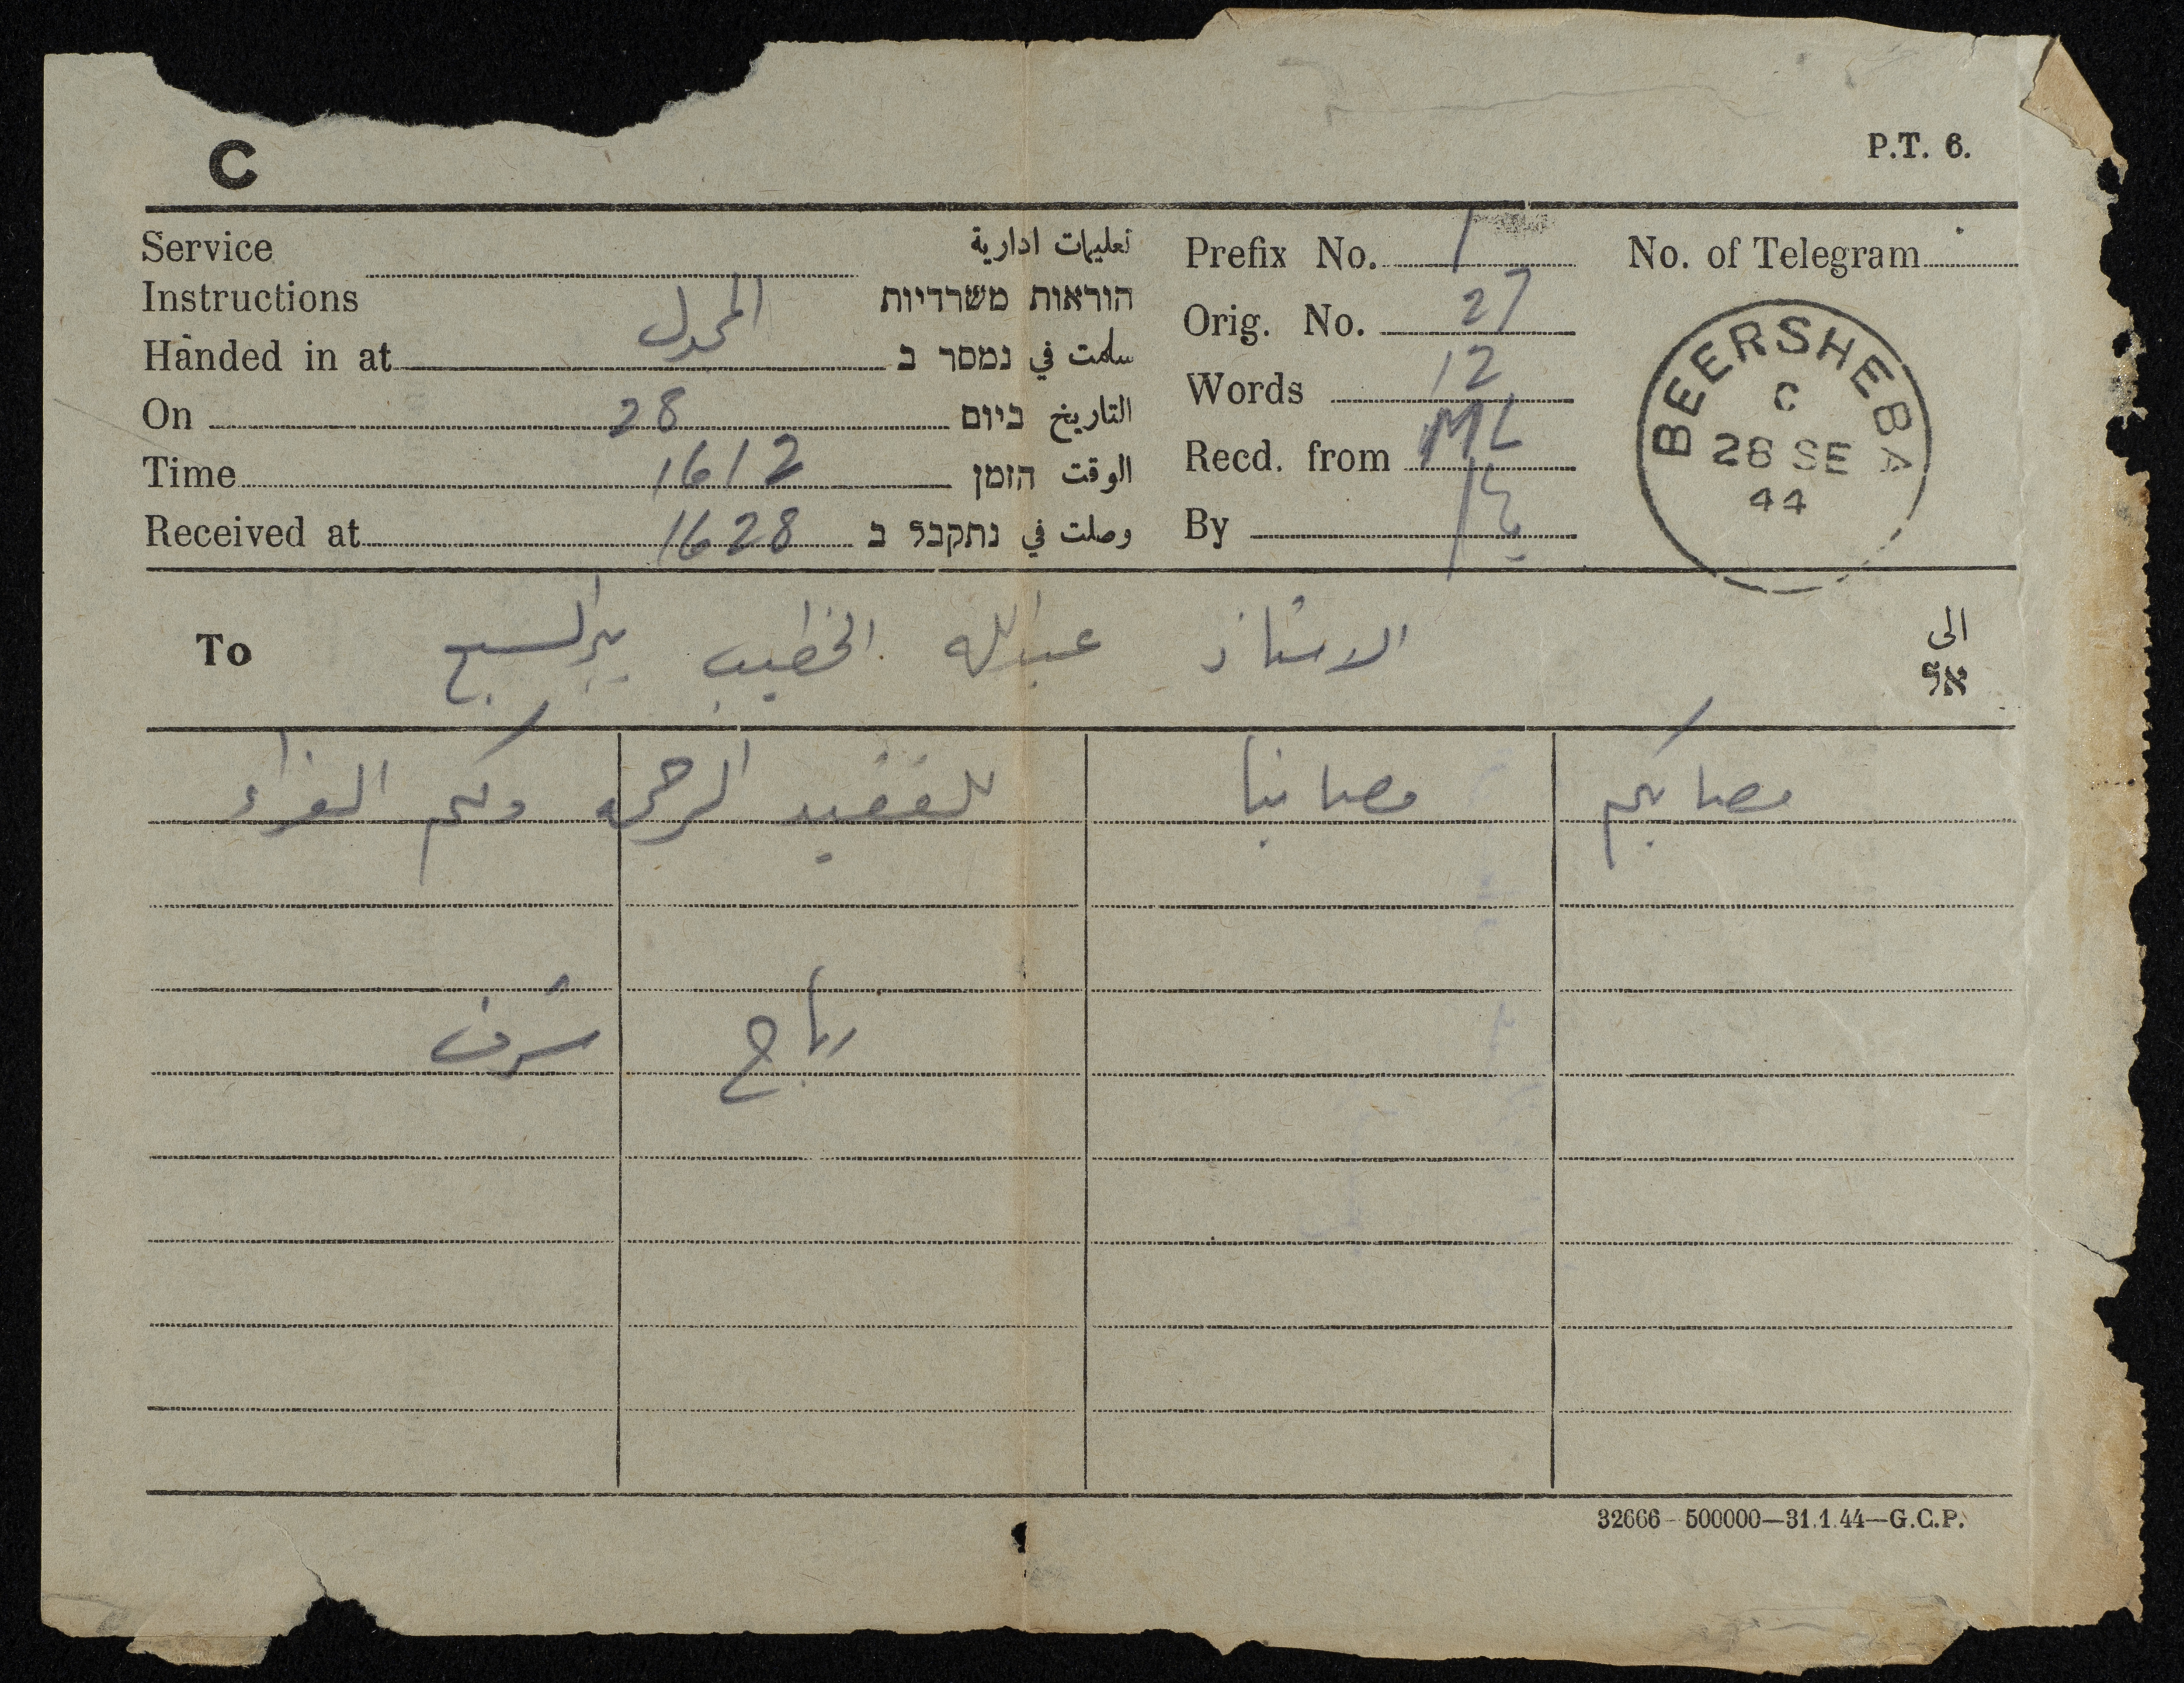 C
P.T. 6.
Service تعليمات ادارية
Instructions הוראות משרדיות
Handed in at المجدل سلمت في נמסר ב
On 28 التاريخ ביום
Time 1612 الوقت הזמן
Received at 1628 وصلت في נתקבל ב
Prefix No. 1
Orig. No. 27
Words 12
Recd. from ML
By
No. of Telegram
BEERSHEBA
C
28 SE
44
To الاستاذ عبدالله الخطيب بير السبع الى
אל
مصابكم مصابنا للفقيد الرحمه ولكم العزاء
رباح شرف
32666-500000—31.1.44—G.C.P.